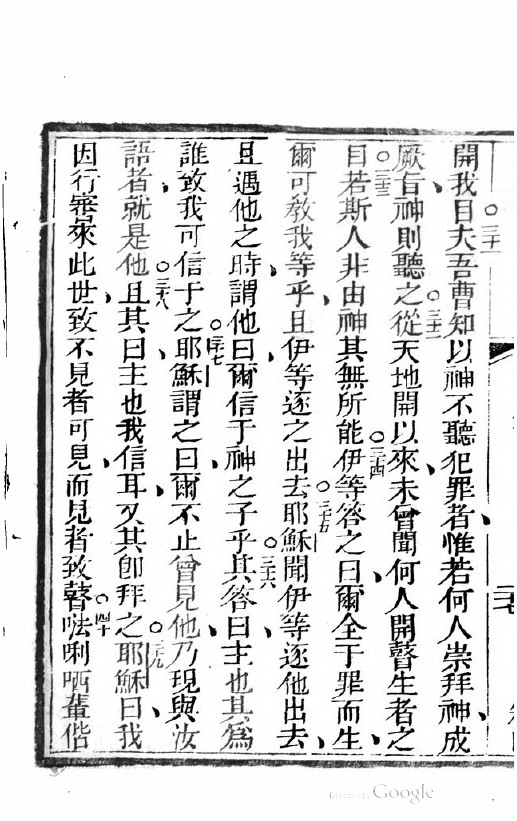 開我目夫吾曹知以神不聽犯罪者惟若何人崇拜神成
厥旨神則聽之從天地開以來未曾聞何人開瞽生者之
目若斯人非由神其無所能伊等答之曰爾全于罪而生
爾可教我等乎且伊等逐之出去耶穌聞伊等逐他出去
且遇他之時謂他曰爾信于神之子乎其答曰主也其為
誰致我可信于之耶穌謂之曰爾不止曾見他乃現與汝
語者就是他且其曰主也我信耳又其卽拜之耶穌曰我
因行審來此世致不見者可見而見者致瞽𠵽唎哂輩偕
三十一
三十二
三十三
三十四
三十五
三十六
三十七
三十八
三九
四十
Digitized by Google